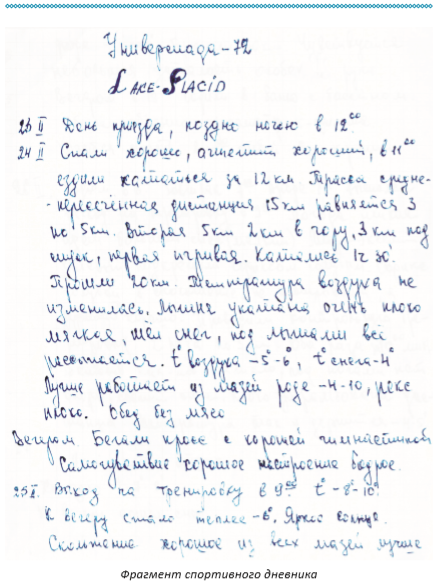 Универсиада-72
LAKE-PLACID
23 II День приезда, поздно ночью в 12⁰⁰
24 II Спали хорошо, аппетит хороший, в 11⁰⁰
ездили кататься за 12 км Трасса средне-
-пересечённая дистанция 15 км равняется 3
по 5 км. Вторая 5 км 2 км в гору, 3 км под
спуск, первая игривая. Катались 1ч 30'.
Прошли 20 км. Температура воздуха не
изменилась. Лыжня укатана очень плохо
мягкая, шёл снег, под лыжами всё
рассыпается. t° воздуха -5°-6°, t° снега-4°
Лучше работает из мазей роде -4-10, рекс
плохо. Обед без мясо
Вечером Бегали кросс с хорошей гимнастикой
Самочувствие хорошее настроение бодрое.
25 II. Выход на тренировку в 9 t° -8°-10°
К вечеру стало теплее -6°. Яркое солнце.
Скольжение хорошее из всех мазей лучше
Фрагмент спортивного дневника